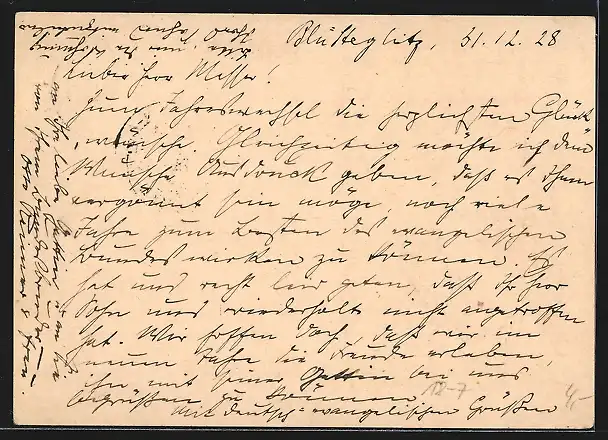 Bln-Steglitz, 31.12.28
Lieber Herr Messer!
Zum Jahreswechsel die herzlichsten Glück-
wünsche. Gleichzeitig möchte ich dem
Wunsche Ausdruck geben, daß es Ihnen
vergönnt sein möge, noch viele
Jahre zum Besten des evangelischen
Bundes wirken zu können. Es
hat uns recht leid getan, daß Ihr Herr
Sohn uns wiederholt nicht angetroffen
hat. Wir hoffen doch, daß wir im
neuen Jahre die Freude erleben,
ihn mit seiner Gattin bei uns
begrüßen zu können.
Mit deutsch-evangelischen Grüßen
an Ihre liebe Gattin u. an Sie
von Ihrem Bundesbruder
Otto u. Frau.
18-7
4,-